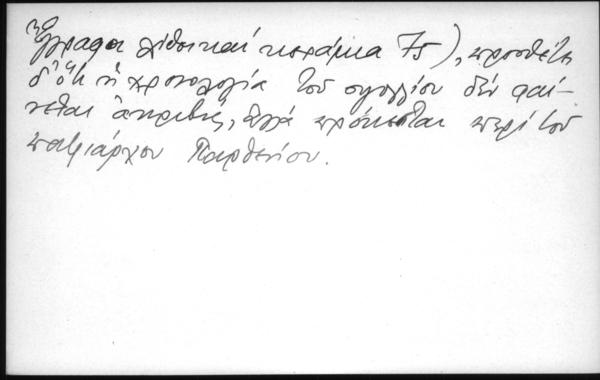 Ἔγγραφοι λίθοι καί κεράμια 75), προσθέτει
δ' ὅτι ἡ χρονολογία τοῦ σιγιλλίου δέν φαί-
νεται ἀκριβής, ἀλλά πρόκειται περί τοῦ
πατριάρχου Παρθενίου.